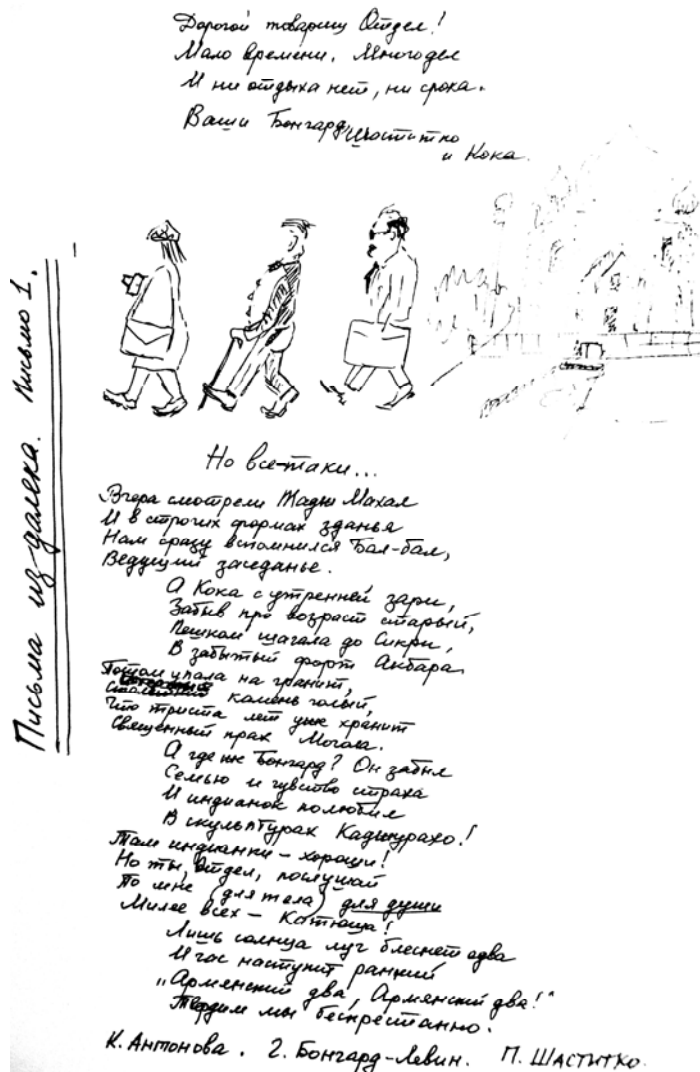 Дорогой товарищ Отдел!
Мало времени. Много дел
И ни отдыха нет, ни срока.
Ваши Бонгард, Шаститко
и Кока.
Письма из-далека. Письмо 1.
Но все-таки...
Вчера смотрели Тадж Махал
И в строгих формах зданья
Нам сразу вспомнился Бал-бал,
Ведущий заседанье.
А Кока с утренней зари,
Забыв про возраст старый,
Пешком шагала до Сикри,
В забытый форт Акбара.
Потом упала на гранит,
камень голый,
Что триста лет уже хранит
Священный прах Могола.
А где же Бонгард? Он забыл
Семью и чувство страха
И индианок полюбил
В скульптурах Каджурахо!
Там индианки - хороши!
Но ты, Отдел, послушай
По мне (для тела) для души
Милее всех - Катюша!
Лишь солнца луч блеснет едва
И час наступит ранний
"Армянский два, Армянский два!"
Твердим мы беспрестанно.
К. Антонова. Г. Бонгард-Левин. П. Шаститко.